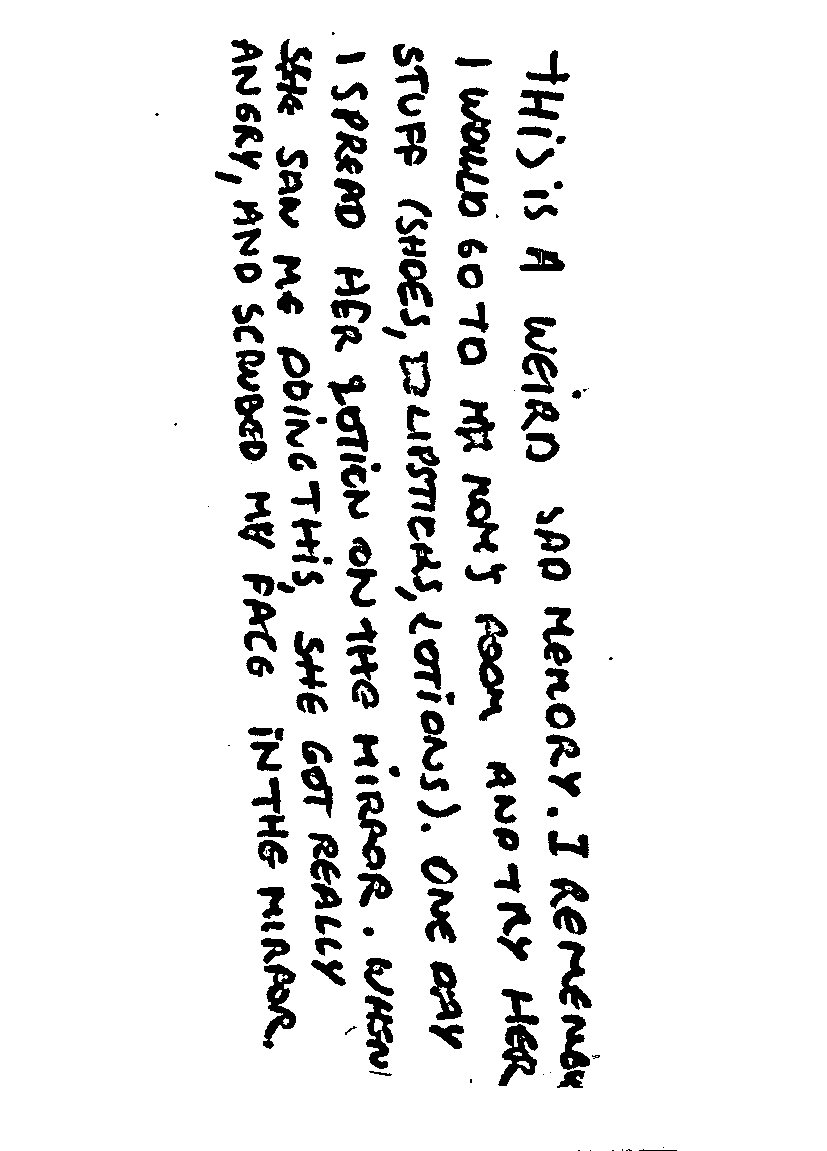 THIS IS A WEIRD SAD MEMORY. I REMEMBER
I WOULD GO TO MY MOM'S ROOM AND TRY HER
STUFF (SHOES, LIPSTICKS, LOTIONS). ONE DAY
I SPREAD HER LOTION ON THE MIRROR. WHEN
SHE SAW ME DOING THIS, SHE GOT REALLY
ANGRY, AND SCRUBBED MY FACE IN THE MIRROR.